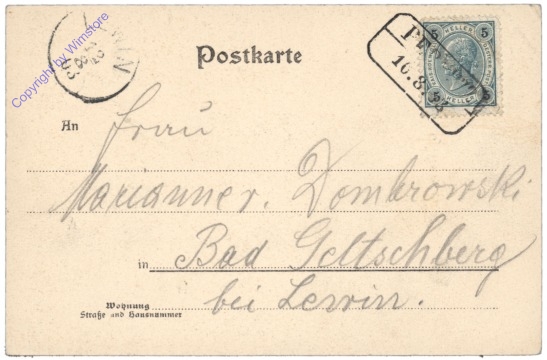 Copyright by Wimstore
LEWIN
Postkarte
5 HELLER 5
16.8.
An Frau
Marianne v. Dombrowski
in Bad Geltschberg
bei Lewin.
Wohnung
Straße und Hausnummer